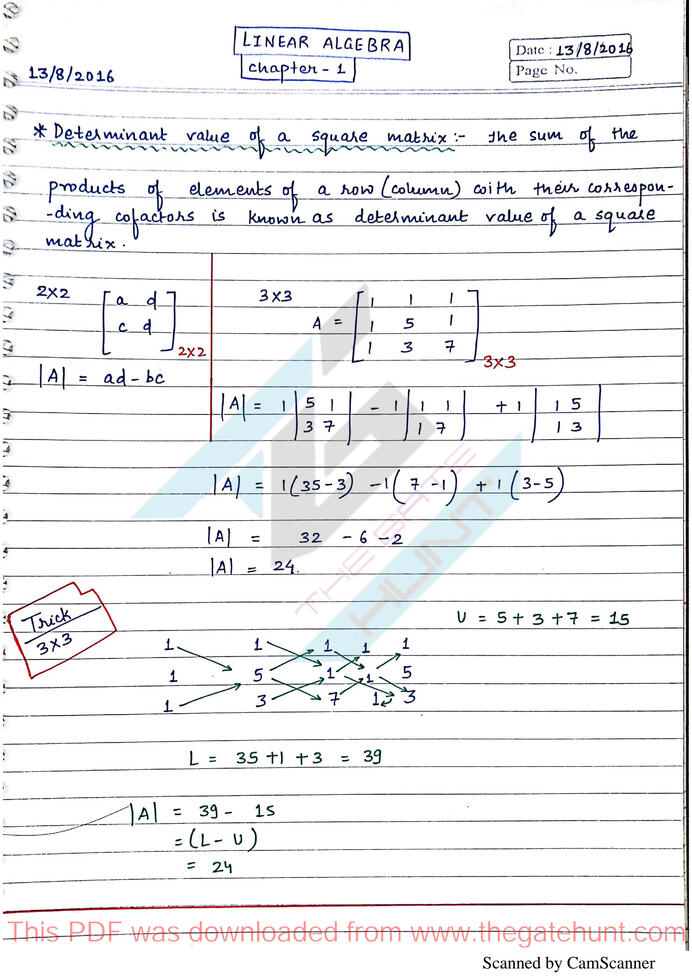 LINEAR ALGEBRA
Chapter - 1
Date : 13/8/2016
Page No.
13/8/2016
* Determinant value of a square matrix :- The sum of the
products of elements of a row (column) with their correspon-
-ding cofactors is known as determinant value of a square
matrix.
2X2
[a d
c d] 2x2
|A| = ad - bc
3X3
A = [1 1 1
1 5 1
1 3 7] 3X3
|A| = 1 |5 1 - 1 |1 1 + 1 |1 5
3 7| 1 7| 1 3|
|A| = 1(35-3) -1(7-1) + 1(3-5)
|A| = 32 - 6 - 2
|A| = 24.
THE GATE
HUNT
Trick
3X3
U = 5 + 3 + 7 = 15
1 1 1 1 1
1 5 1 1 5
1 3 7 1 3
L = 35 + 1 + 3 = 39
|A| = 39 - 15
= (L - U)
= 24
This PDF was downloaded from www.thegatehunt.com
Scanned by CamScanner